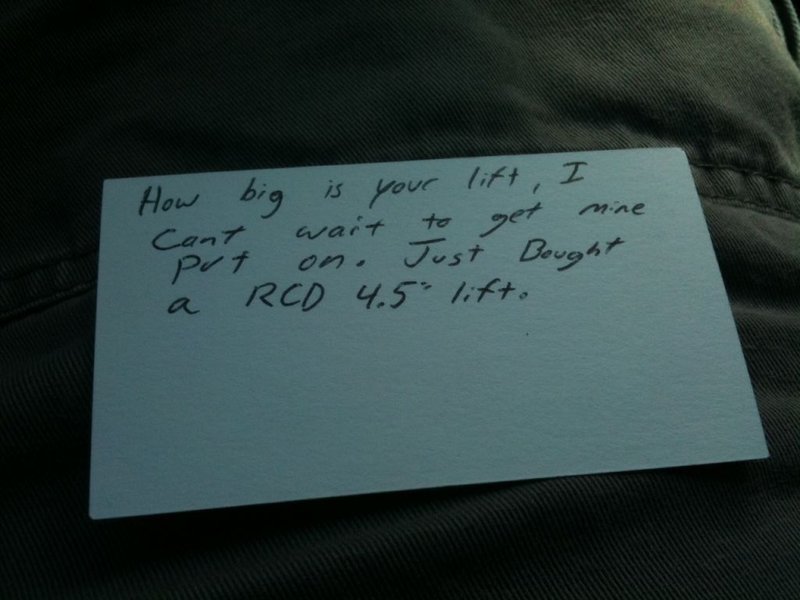 How big is your lift, I
Cant wait to get mine
put on. Just Bought
a RCD 4.5" lift.